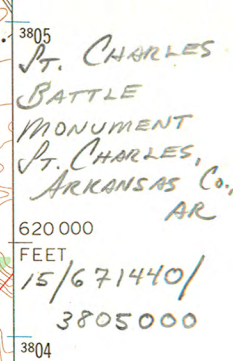 3805
St. Charles
Battle
Monument
St. Charles,
Arkansas Co.,
AR
620 000
FEET
15/671440/
3805000
3804